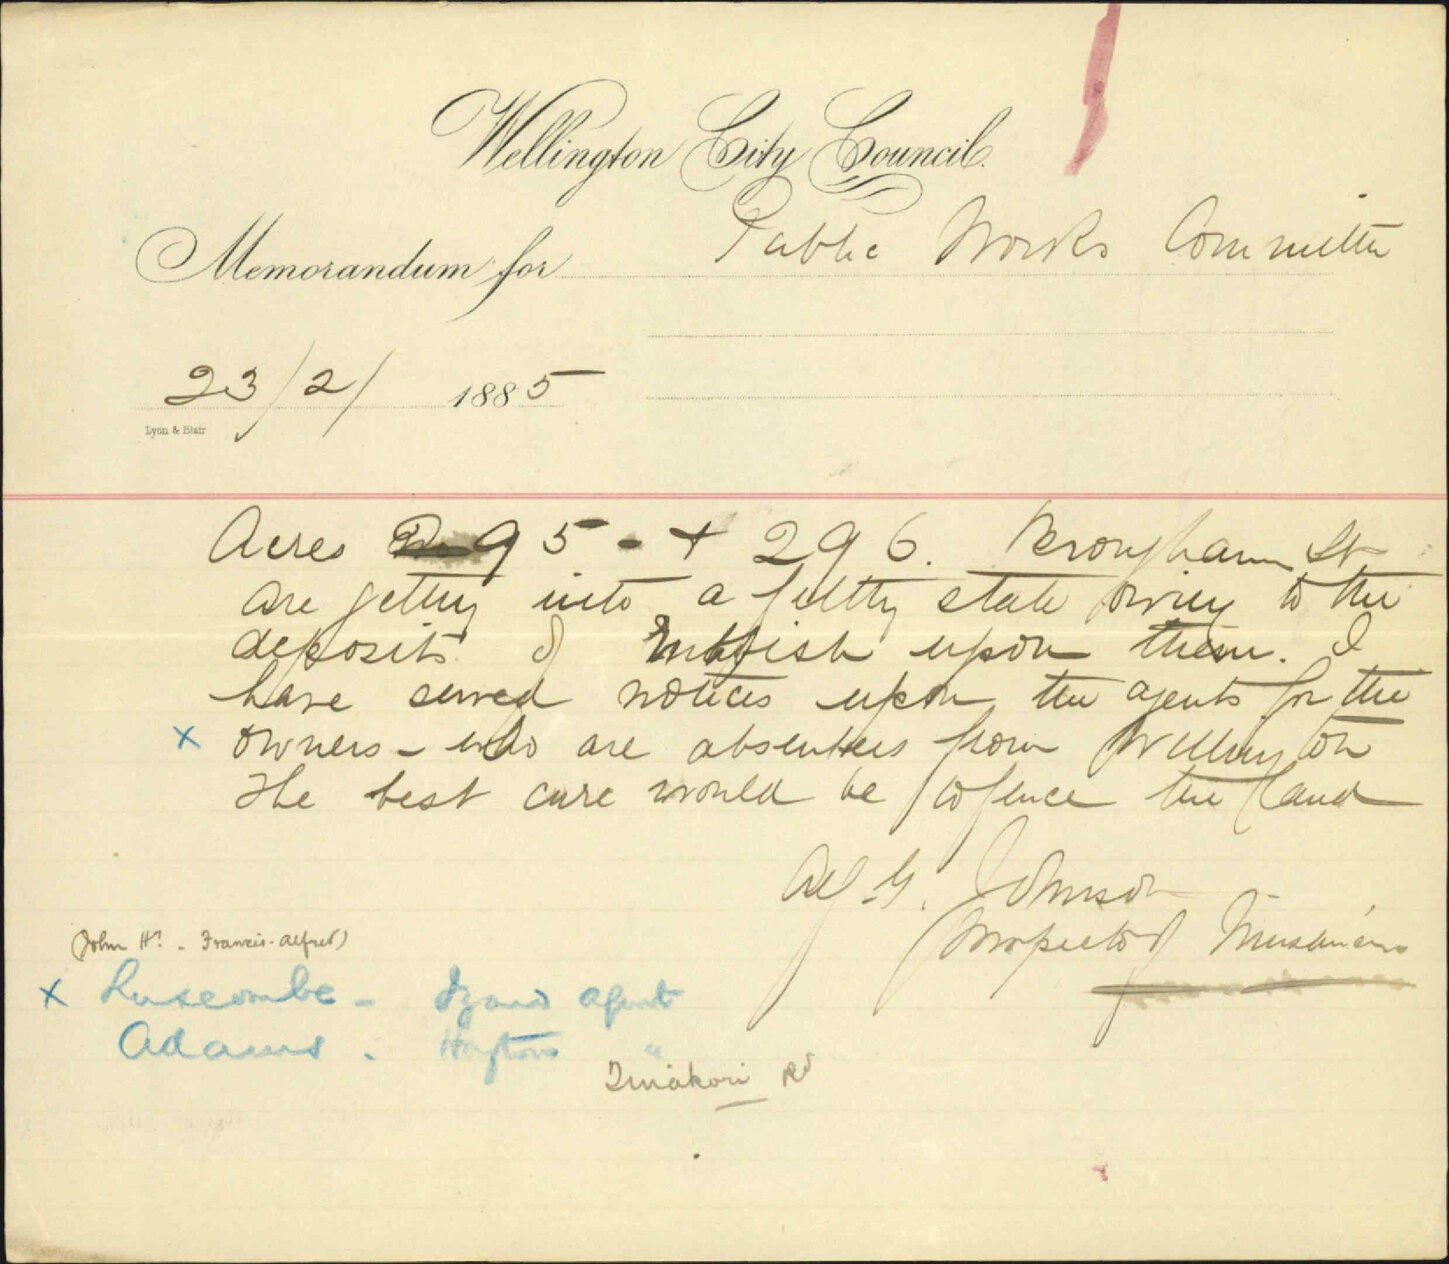 Wellington City Council.
Memorandum for Public Works Committee
23/2/ 1885
Lyon & Blair
Acres 95 - + 296. Brougham St
are getting into a filthy state owing to the
deposits of rubbish upon them. I
have served notices upon the agents for the
x owners - who are absentees from Wellington
The best cure would be to fence the land
Alf. G. Johnson
Inspector of Nuisances
(John Hy. - Francis - Alfred)
x Luscombe - Izard agent
Adams . "
Tinakori Rd